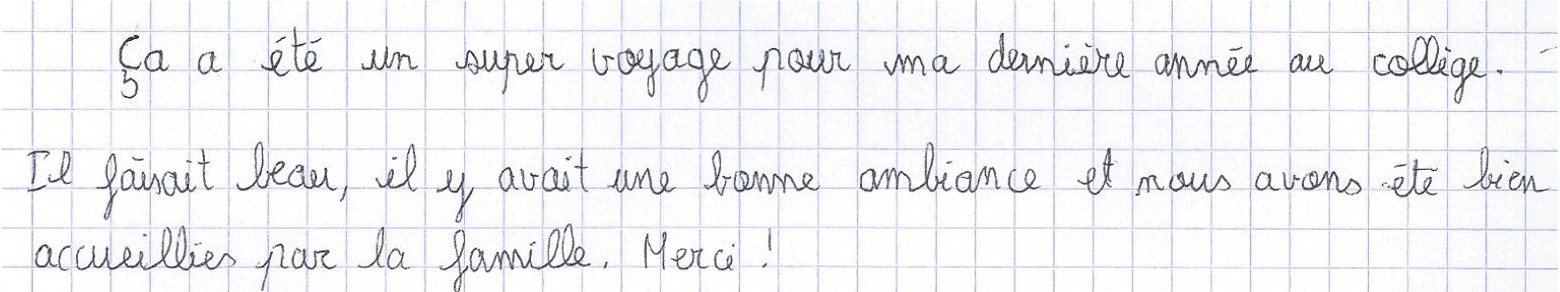 Ça a été un super voyage pour ma dernière année au collège.
Il faisait beau, il y avait une bonne ambiance et nous avons été bien
accueillies par la famille. Merci !